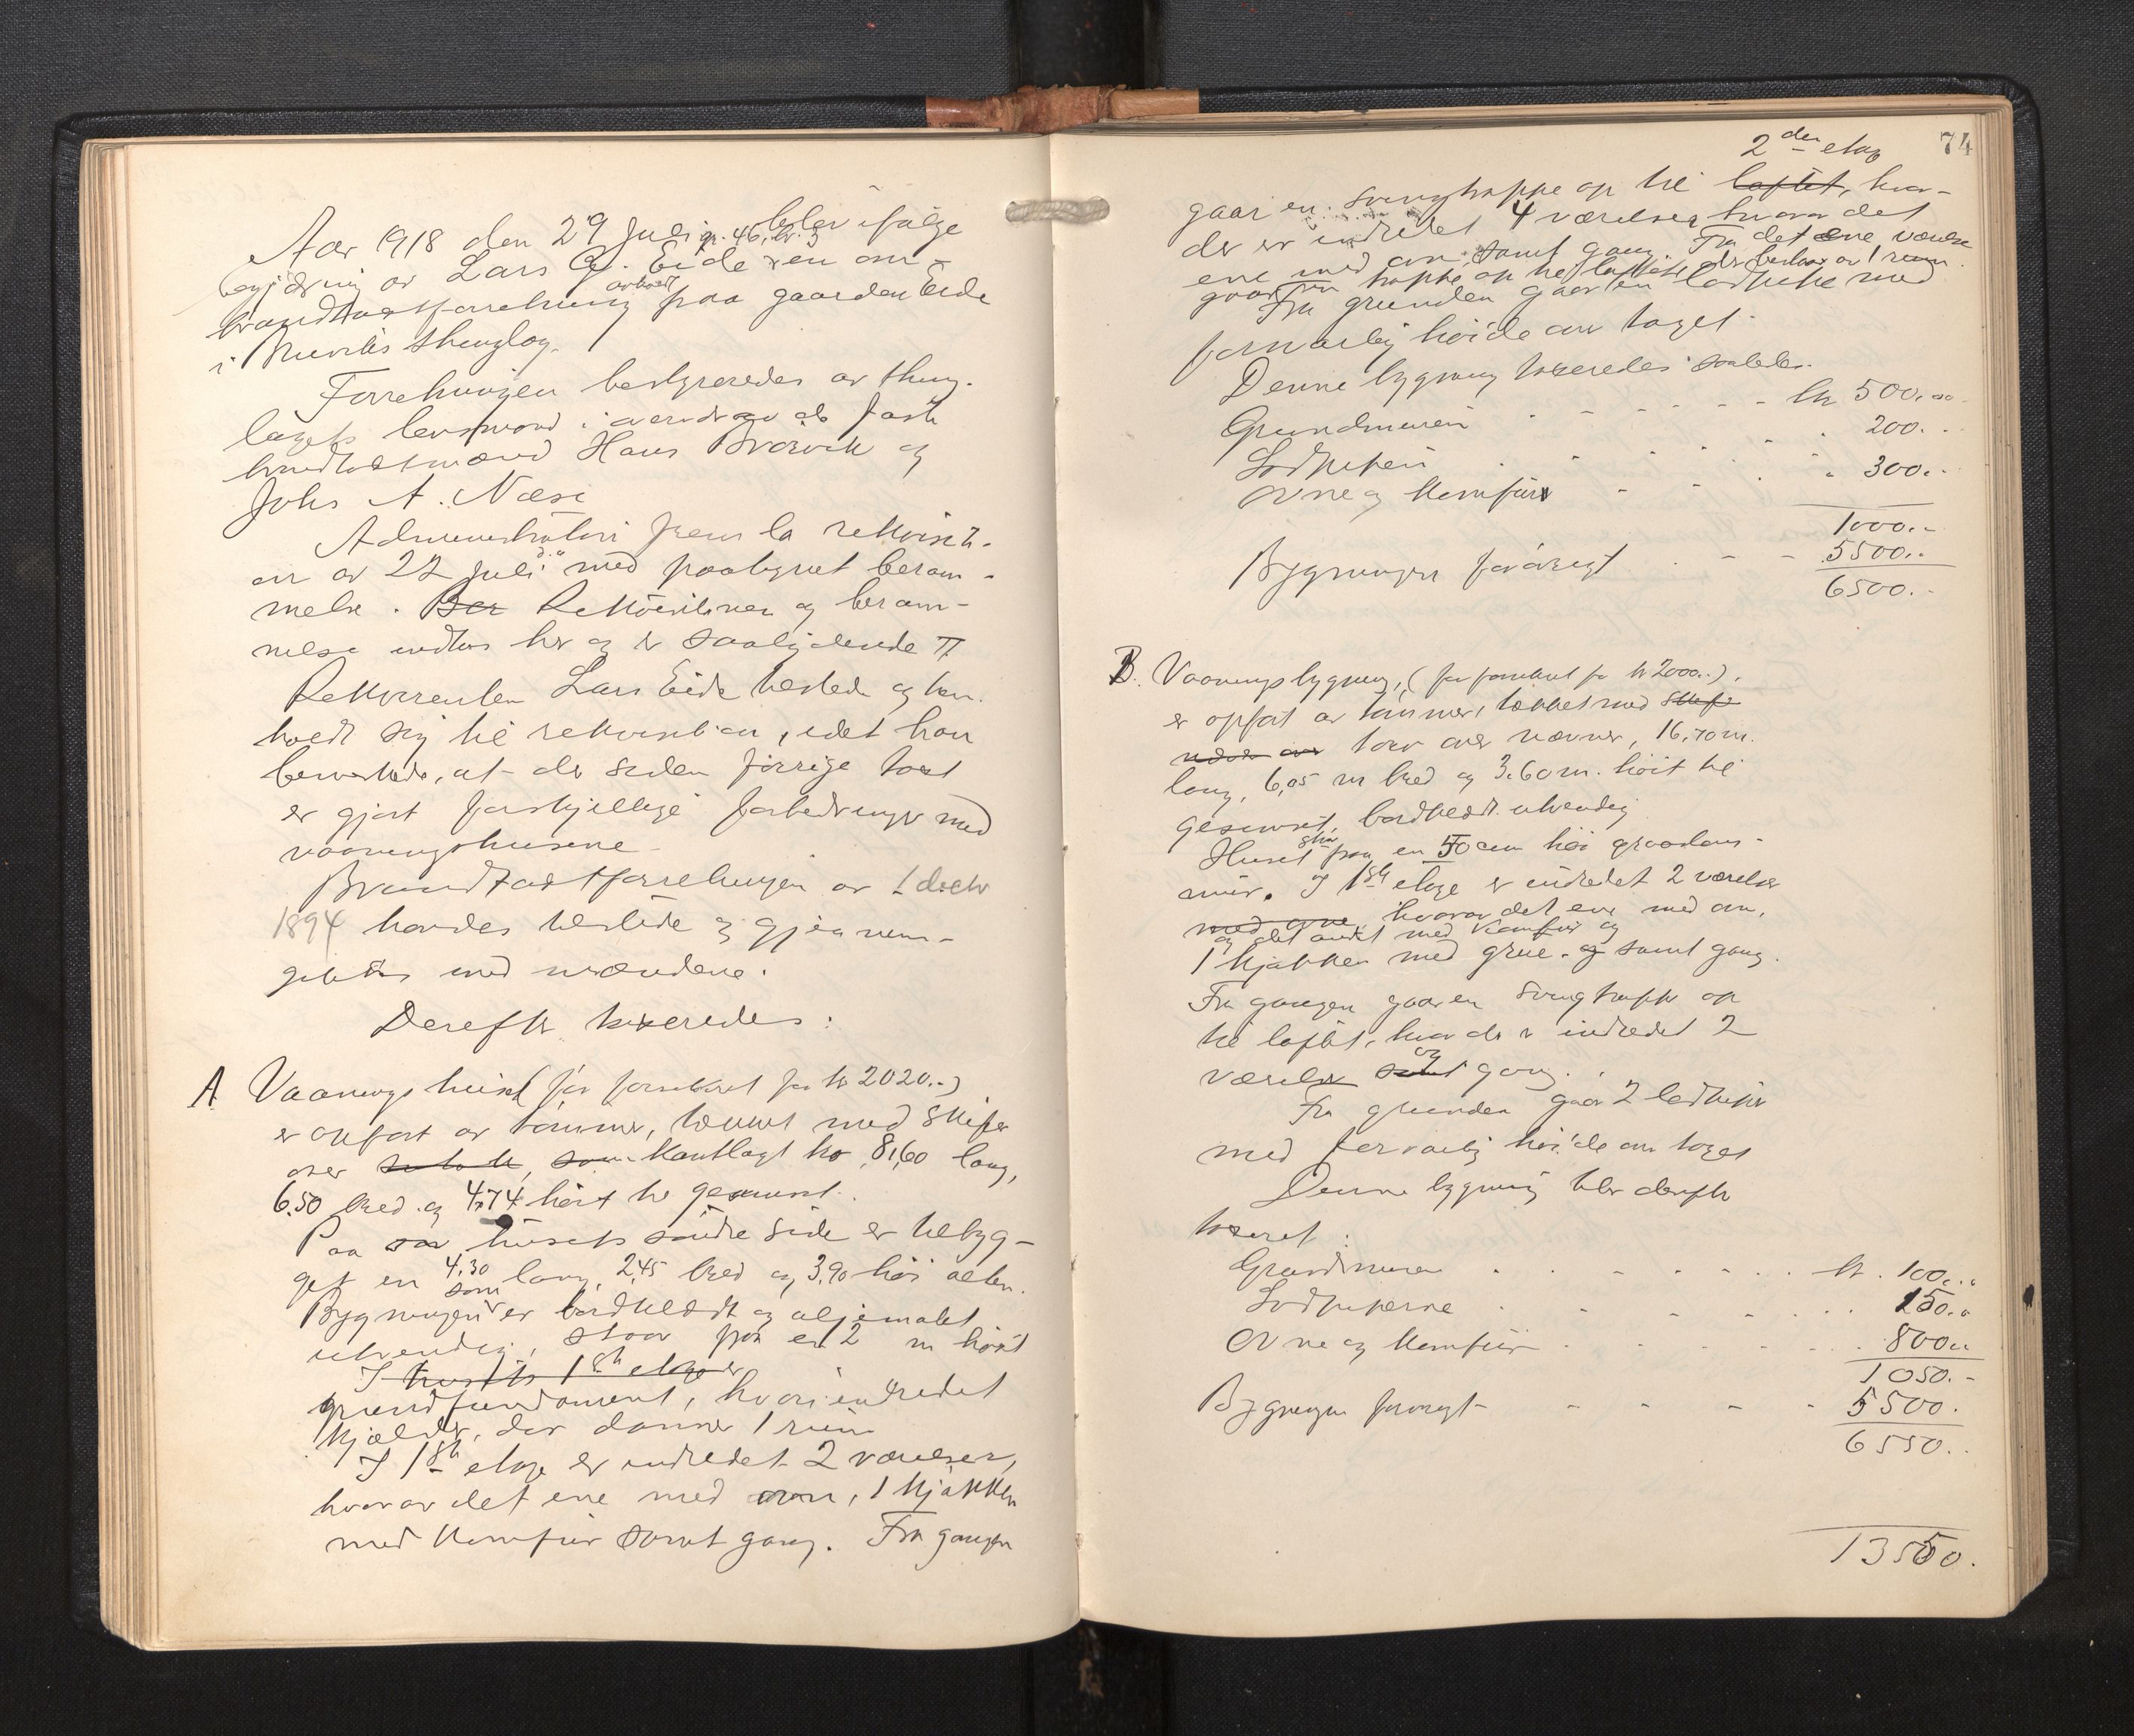 Aar 1918 den 29 Juli blev ifølge
begjæring av Lars G. Eide gr. 46, br. 3 en om-
brandtaxtforretning avholdt paa gaarden Eide
i thinglag.
Forretningen bestyreredes av thing-
lagets lensmand i overvær av de faste
brandtakstmænd Hans og
Johs A. Næse
Administrator frem la rekvisiti-
on av 22 juli d.å. med paategnet beram-
melse. Ber Rekvisitionen og beram-
melse indtas her og er saalydende //
Rekvirenten Lars Eide tilstede og hen-
holdt sig til rekvisitionen, idet han
bemerkede, at der siden forrige taxt
er gjort forskjellige forbedringer med
vaaningshusene.
Brandtaxtforretningen av 1 decbr
1894 havdes tilstede og gjennem-
gikkes med mændene.
Derefter taxeredes:
A Vaaningshuset (før forsikret for kr 2020.-)
er opført av tømmer, tækket med skifer
over kantlagt bro 8,60 lang,
6.50 bred og 4,74 høit til gesimset.
Paa husets søndre side er tilbyg-
get en 4,30 lang, 2,45 bred og 3,90 høi
Bygningen som er bordklædt og oljemalet
utvendig, staar paa en 2 m høit
I husets 1ste etage er
grundfundament, hvori indredet
kjælder, der danner 1 rum
I 1ste etage er indredet 2 værelser,
hvorav det ene med ovn, 1 kjøkken
med komfur samt gang. Fra gangen
74
2den etage
gaar en svingtrappe op til loftet, hvor-
der er indredet 4 værelser, hvorav det
ene med ovn, samt gang. Fra det ene værelse
gaar en trappe op til loftet der bestaar av 1 rum.
Fra grunden gaar en ladpipe med
forsvarlig høide over taget.
Denne bygning taxeredes saaledes.
Grundmuren - - - - - - kr 500.00
Ladpipen - - - - - - 200.-
Ovne og komfur - - - - 300.-
1000.-
Bygningen forøvrigt - - - 5500.-
6500.-
B. Vaaningsbygning, (før forsikret for kr 2000.-).
er opført av tømmer, tækket med skifer
torv over næver, 16,70 m.
lang, 6,05 m bred og 3.60 m. høit til
gesimset, bordklædt utvendig
Huset staar paa en 50 cm høi graastens-
mur. I 1ste etage er indredet 2 værelser
med ovne, hvorav det ene med ovn,
og det andet med komfur og
1 kjøkken med grue. og samt gang.
Fra gangen gaar en svingtrappe op
til loftet, hvor der er indredet 2
værelser samt og gang.
Fra grunden gaar 2 ladpiper
med forsvarlig høide over taget
Denne bygning blev derefter
taxeret:
Grundmuren - - - - - - kr. 100.-
Ladpiperne - - - - - - 150.-
Ovne og komfur - - - - - 800.-
1050.-
Bygningen forøvrigt - - - - 5500.
6550.-
13550.